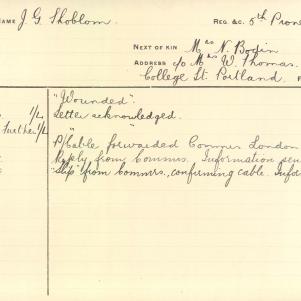 NAME J. G. Shoblom. REG. &C. 5th Pion
NEXT OF KIN Mrs N. Bodin
ADDRESS c/o Mrs W. Thomas.
College St. Portland.
"Wounded".
1/4 Letter acknowledged.
Further 1/2
P/Cable forwarded Commr London
Reply from Commrs. Information
"Slip" from Commrs, confirming cable. Infor